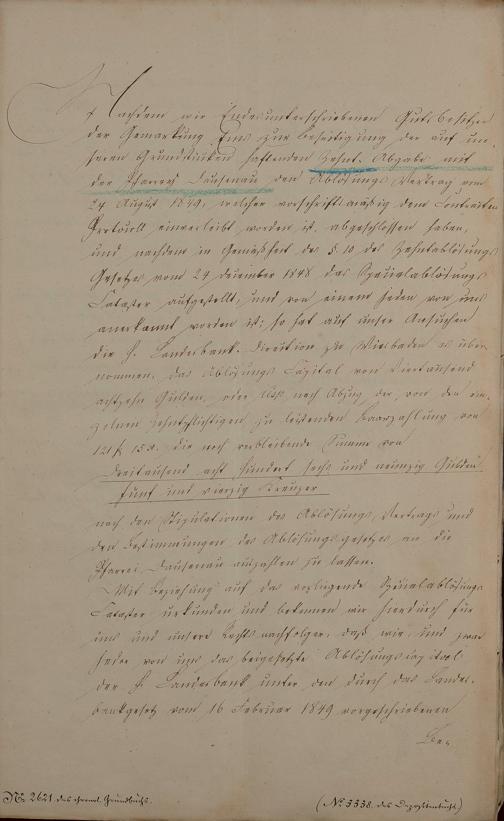 Nachdem wir Endesunterschriebenen Gutsbesitzer
der Gemarkung Ems zur Beseitigung der auf un-
seren Grundstücken haftenden Zehnt-Abgabe mit
der Pfarrei Dausenau den Ablösungs-Vertrag vom
24 August 1849, welcher vorschriftsmäßig dem Contracten
Protocoll einverleibt worden ist, abgeschlossen haben,
und nachdem in Gemäßheit des §. 10 des Zehntablösungs
Gesetzes vom 24 December 1848 das Specialablösungs
Cataster aufgestellt, und von einem jeden von uns
anerkannt worden ist; so hat auf unser Ansuchen
die H. Landesbank-Direction zu Wiesbaden es über
nommen, das Ablösungs Capital von Viertausend
achtzehn Gulden, oder nach Abzug der, von den ein-
zelnen Zehntpflichtigen zu leistenden Baarzahlung von
121 f 15 x. die noch verbleibende Summe von
Dreitausend acht hundert sechs und neunzig Gulden
fünf und vierzig Kreuzer
nach den Stipulationen des Ablösungs-Vertrags und
den Bestimmungen des Ablösungsgesetzes an die
Pfarrei Dausenau auszahlen zu lassen.
Mit Beziehung auf das vorliegende Specialablösungs
Cataster urkunden und bekennen wir hierdurch für
uns und unsere Rechtsnachfolger, daß wir, und zwar
jeder von uns das beigesetzte Ablösungscapital
der H. Landesbank unter den durch das Landes-
bankgesetz vom 16 Februar 1849 vorgeschriebenen
Be-
No 2621 des Grundbuchs.
(No 3338. des)